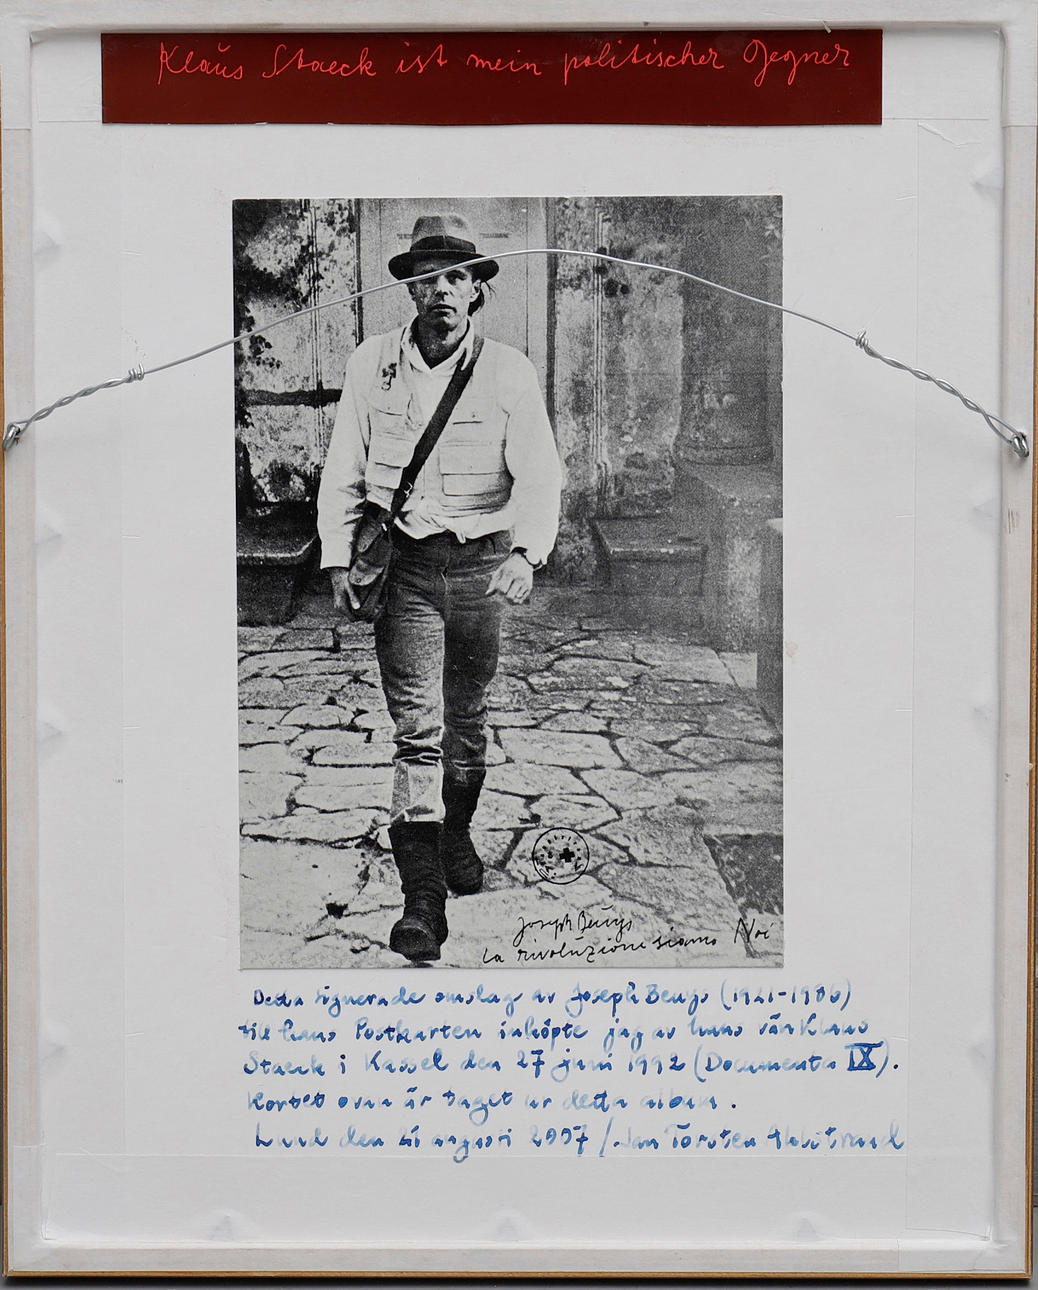 Klaus Staeck ist mein politischer Gegner
Joseph Beuys
La rivoluzione siamo Noi
Detta signerade omslag av Joseph Beuys (1921-1986)
till hans Postkarten inköpte jag av hans vän Klaus
Staeck i Kassel den 27 juni 1992 (Documenta IX).
Kortet ovan är taget ur detta album.
Lund den 21 augusti 2007 / Jan Torsten Ahlstrand